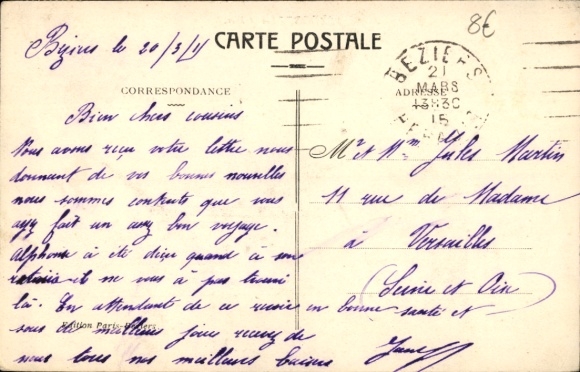 8€
Béziers le 20/3/15
CARTE POSTALE
BEZIERS
21
MARS
13H30
15
CORRESPONDANCE
ADRESSE
Bien chers cousins
Nous avons reçu votre lettre nous
donnant de vos bonnes nouvelles
nous sommes contents que vous
ayy fait un assy bon voyage.
Alphonse à été déçu quand à son
et ne vous à pas trouvé
là. En attendant de ce revoir en bonne santé et
sous de meilleur jour recevez de
nous tous nos meilleurs baisers
Mr et Mme Jules Martin
11 rue de Madame
à Versailles
(Seine et Oise)
Edition Paris-